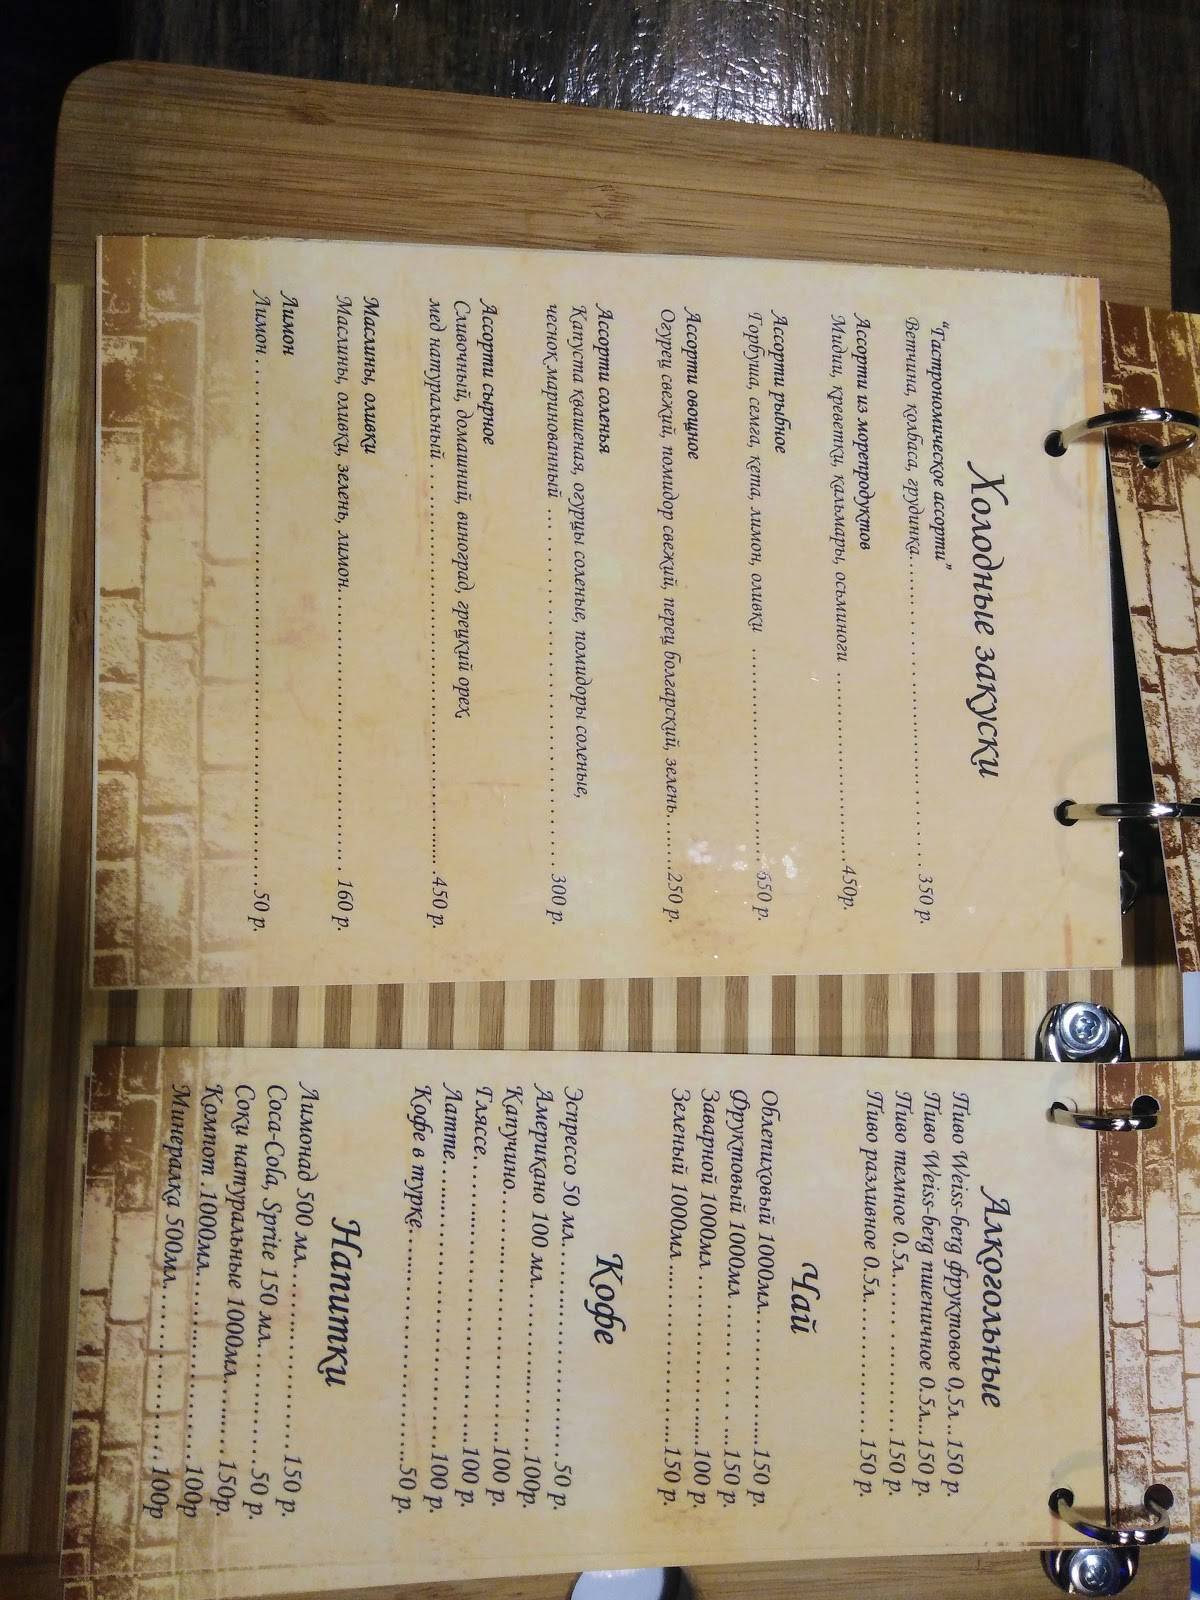 Холодные закуски
"Гастрономическое ассорти"
Ветчина, колбаса, грудинка.............................. 350 р.
Ассорти из морепродуктов
Мидии, креветки, кальмары, осьминоги ........................450р.
Ассорти рыбное
Горбуша, семга, кета, лимон, оливки ..........................650 р.
Ассорти овощное
Огурец свежий, помидор свежий, перец болгарский, зелень.......250 р.
Ассорти соленья
Капуста квашеная, огурцы соленые, помидоры соленые,
чеснок маринованный .................................300 р.
Ассорти сырное
Сливочный, домашний, виноград, грецкий орех,
мед натуральный............................................450 р.
Маслины, оливки
Маслины, оливки, зелень, лимон............................... 160 р.
Лимон
Лимон......................................................50 р.
Алкогольные
Пиво Weiss-berg фруктовое 0,5л...150 р.
Пиво Weiss-berg пшеничное 0.5л...150 р.
Пиво темное 0.5л................150 р.
Пиво разливное 0.5л............150 р.
Чай
Облепиховый 1000мл..............150 р.
Фруктовый 1000мл..............150 р.
Заварной 1000мл................100 р.
Зеленый 1000мл.................150 р.
Кофе
Эспрессо 50 мл.....................50 р.
Американо 100 мл..................100р.
Капучино.........................100 р.
Гляссе...........................100 р.
Латте............................100 р.
Кофе в турке......................50 р.
Напитки
Лимонад 500 мл..................150 р.
Coca-Cola, Sprite 150 мл............50 р.
Соки натуральные 1000мл.........150р.
Компот .1000мл..................100р
Минералка 500мл.................100р